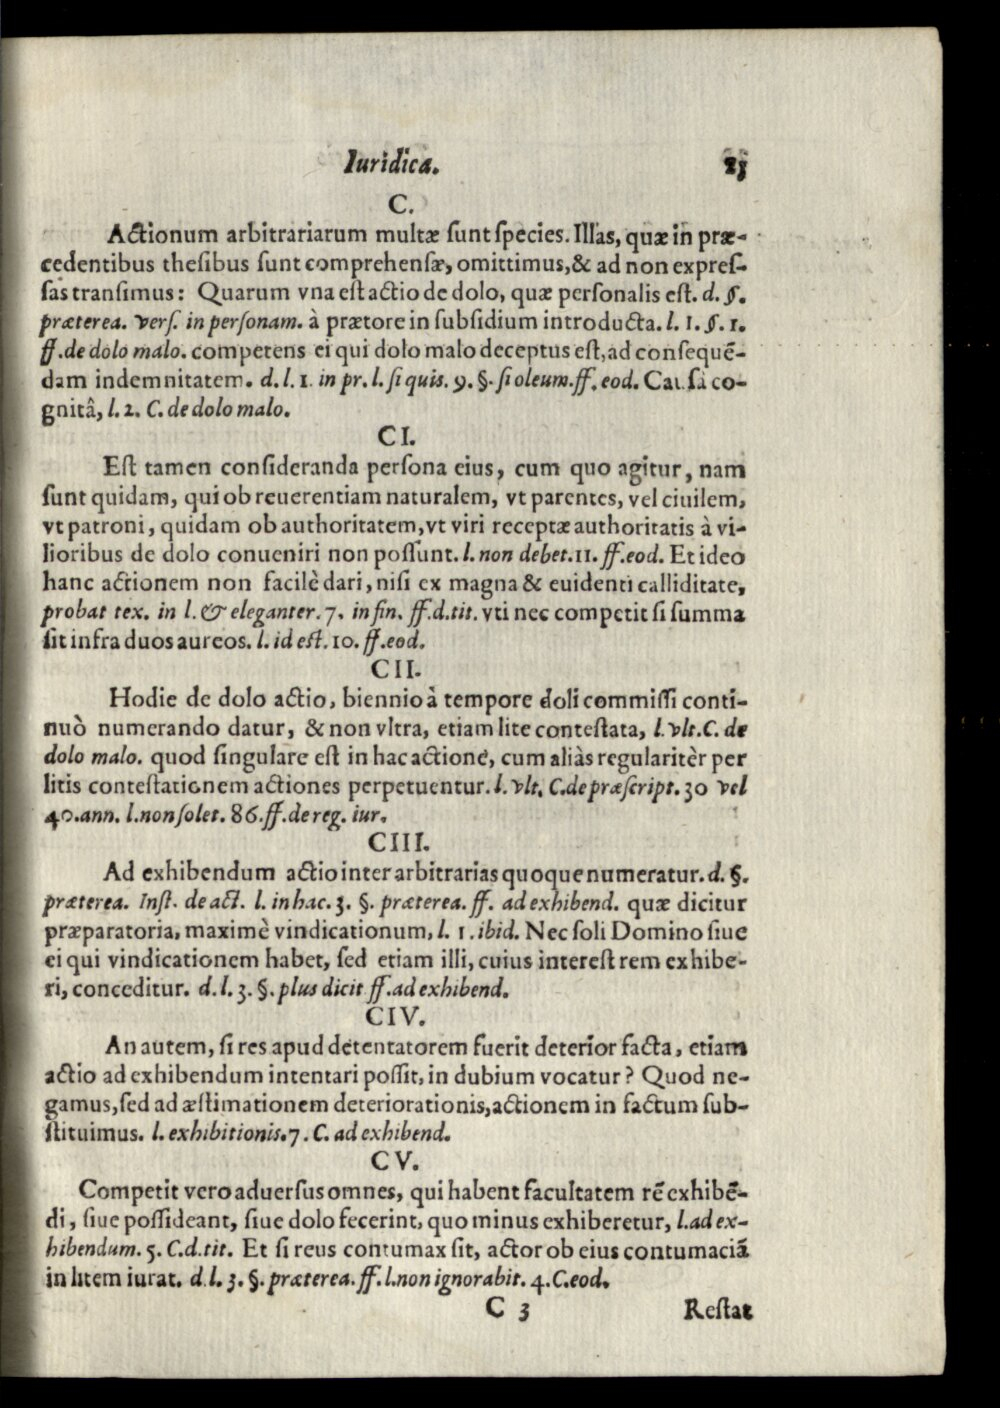 Iuridica. 23
C.
Actionum arbitrariarum multæ ſunt ſpecies. Illas, quæ in præ-
cedentibus theſibus ſunt comprehenſæ, omittimus, & ad non expreſ-
ſas tranſimus: Quarum vna eſt actio de dolo, quæ perſonalis eſt. d. §.
præterea. verſ. in perſonam. à prætore in ſubſidium introducta. l. 1. §. 1.
ff. de dolo malo. competens ei qui dolo malo deceptus eſt, ad conſequē-
dam indemnitatem. d. l. 1. in pr. l. ſi quis. 9. §. ſi oleum. ff. eod. Cauſâ co-
gnitâ, l. 2. C. de dolo malo.
CI.
Eſt tamen conſideranda perſona eius, cum quo agitur, nam
ſunt quidam, qui ob reuerentiam naturalem, vt parentes, vel ciuilem,
vt patroni, quidam ob authoritatem, vt viri receptæ authoritatis à vi-
lioribus de dolo conueniri non poſſunt. l. non debet. 11. ff. eod. Et ideo
hanc actionem non facilè dari, niſi ex magna & euidenti calliditate,
probat tex. in l. & eleganter. 7. in fin. ff. d. tit. vti nec competit ſi ſumma
ſit infra duos aureos. l. id eſt. 10. ff. eod.
CII.
Hodie de dolo actio, biennio à tempore doli commiſſi conti-
nuò numerando datur, & non vltra, etiam lite conteſtata, l. vlt. C. de
dolo malo. quod ſingulare eſt in hac actione, cum aliàs regularitèr per
litis conteſtationem actiones perpetuentur. l. vlt. C. de præſcript. 30 vel
40. ann. l. non ſolet. 86. ff. de reg. iur.
CIII.
Ad exhibendum actio inter arbitrarias quoque numeratur. d. §.
præterea. Inſt. de act. l. in hac. 3. §. præterea. ff. ad exhibend. quæ dicitur
præparatoria, maximè vindicationum, l. 1. ibid. Nec ſoli Domino ſiue
ei qui vindicationem habet, ſed etiam illi, cuius intereſt rem exhibe-
ri, conceditur. d. l. 3. §. plus dicit ff. ad exhibend.
CIV.
An autem, ſi res apud detentatorem fuerit deterior facta, etiam
actio ad exhibendum intentari poſſit, in dubium vocatur? Quod ne-
gamus, ſed ad æſtimationem deteriorationis, actionem in factum ſub-
ſtituimus. l. exhibitionis. 7. C. ad exhibend.
CV.
Competit vero aduerſus omnes, qui habent facultatem rē exhibē-
di, ſiue poſſideant, ſiue dolo fecerint, quo minus exhiberetur, l. ad ex-
hibendum. 5. C. d. tit. Et ſi reus contumax ſit, actor ob eius contumaciā
in litem iurat. d. l. 3. §. præterea. ff. l. non ignorabit. 4. C. eod.
C 3 Reſtat